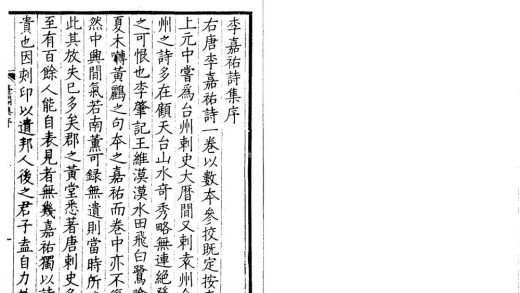 李嘉祐詩集序
右唐李嘉祐詩一卷以數本參挍既定按
上元中嘗爲台州刺史大曆間又刺袁州
州之詩多在顧天台山水奇秀略無連絕
之可恨也李肇記王維漠漠水田飛白鷺
夏木囀黃鸝之句本之嘉祐而卷中亦不
然中興間氣若南薰可録無遺則當時所
此其放失已多矣郡之黃堂悉著唐刺史
至有百餘人能自表見者無幾嘉祐獨以
貴也因刻印以遺邦人後之君子盍自力